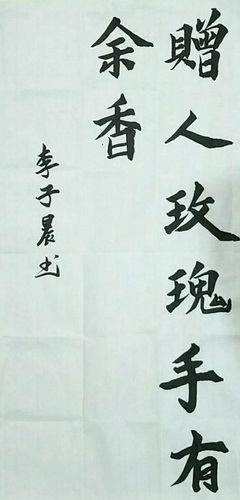 贈人玫瑰手有
余香
李子晨书